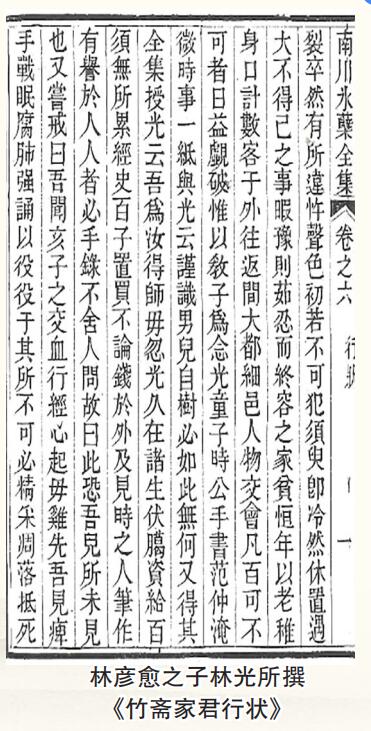 南川氷蘗全集 卷之六 行狀 一
裂卒然有所違忤聲色初若不可犯須臾卽冷然休置遇
大不得已之事暇豫則茹忍而終容之家貧恒年以老稚
身口計數客于外往返間大都細邑人物交會凡百可不
可者日益覷破惟以敎子爲念光童子時公手書范仲淹
微時事一紙與光云謹識男兒自樹必如此無何又得其
全集授光云吾爲汝得師毋忽光久在諸生伏臈資給百
須無所累經史百子置買不論錢於外及見時之人筆作
有譽於人人者必手錄不舍人問故曰此恐吾兒所未見
也又嘗戒曰吾聞亥子之交血行經心起毋雞先吾見痺
手戰眠腐肺强誦以役役于其所不可必精采凋落抵死
林彦愈之子林光所撰
《竹斋家君行状》